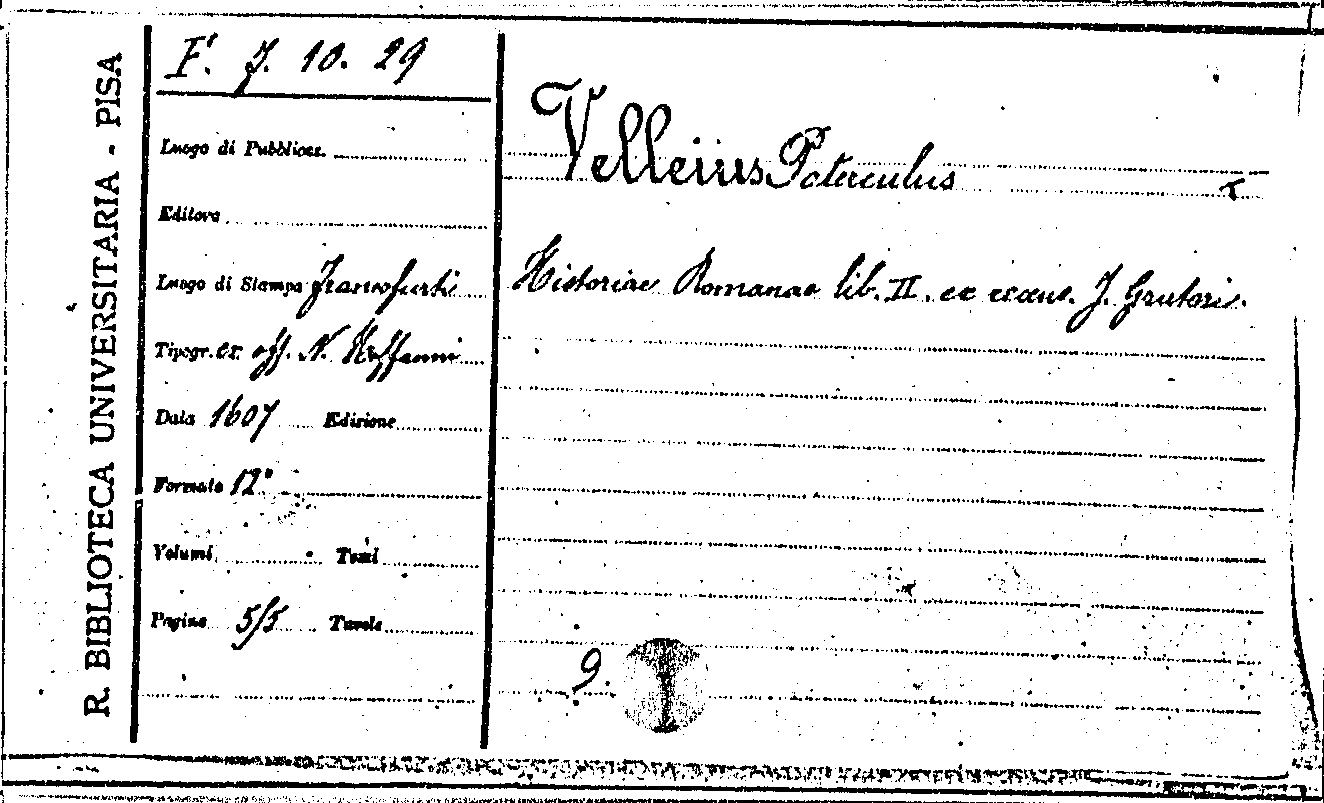 R. BIBLIOTECA UNIVERSITARIA - PISA
F. J. 10. 29
Luogo di Pubblicaz.
Editore
Luogo di Stampa Francofurti
Tipogr. ex off. N. Hoffanni
Data 1607 Edizione
Formato 12°
Volumi Tomi
Pagine 515 Tavole
Velleius Paterculus
Historiae Romanae lib. II. ex recens. J. Gruteri.
9.